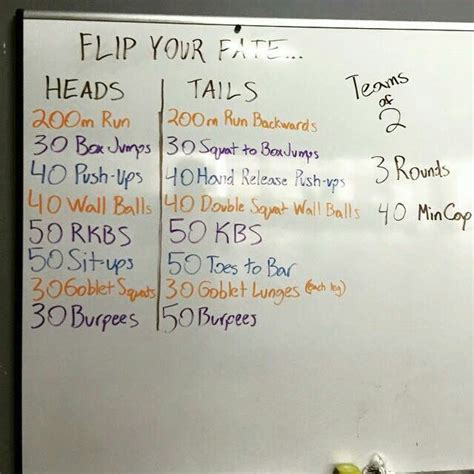 FLIP YOUR FATE...
HEADS
200m Run
30 Box Jumps
40 Push-ups
40 Wall Balls
50 RKBS
50 Sit-ups
30 Goblet Squats
30 Burpees
TAILS
200m Run Backwards
30 Squat to Box Jumps
40 Hand Release Push-ups
40 Double Squat Wall Balls
50 KBS
50 Toes to Bar
30 Goblet Lunges (each leg)
50 Burpees
Teams
of
2
3 Rounds
40 Min Cap